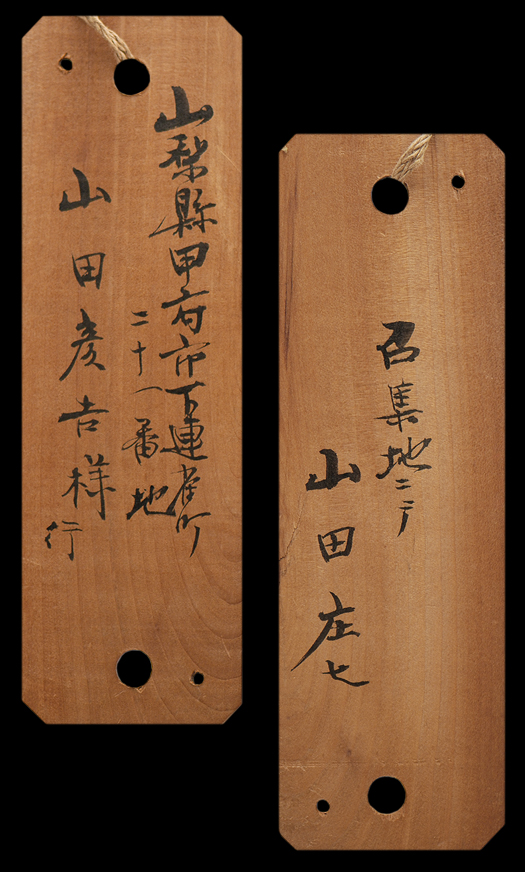 山梨縣甲府市下連雀町
二十八番地
山田彦吉様
行
召集地ニテ
山田庄七